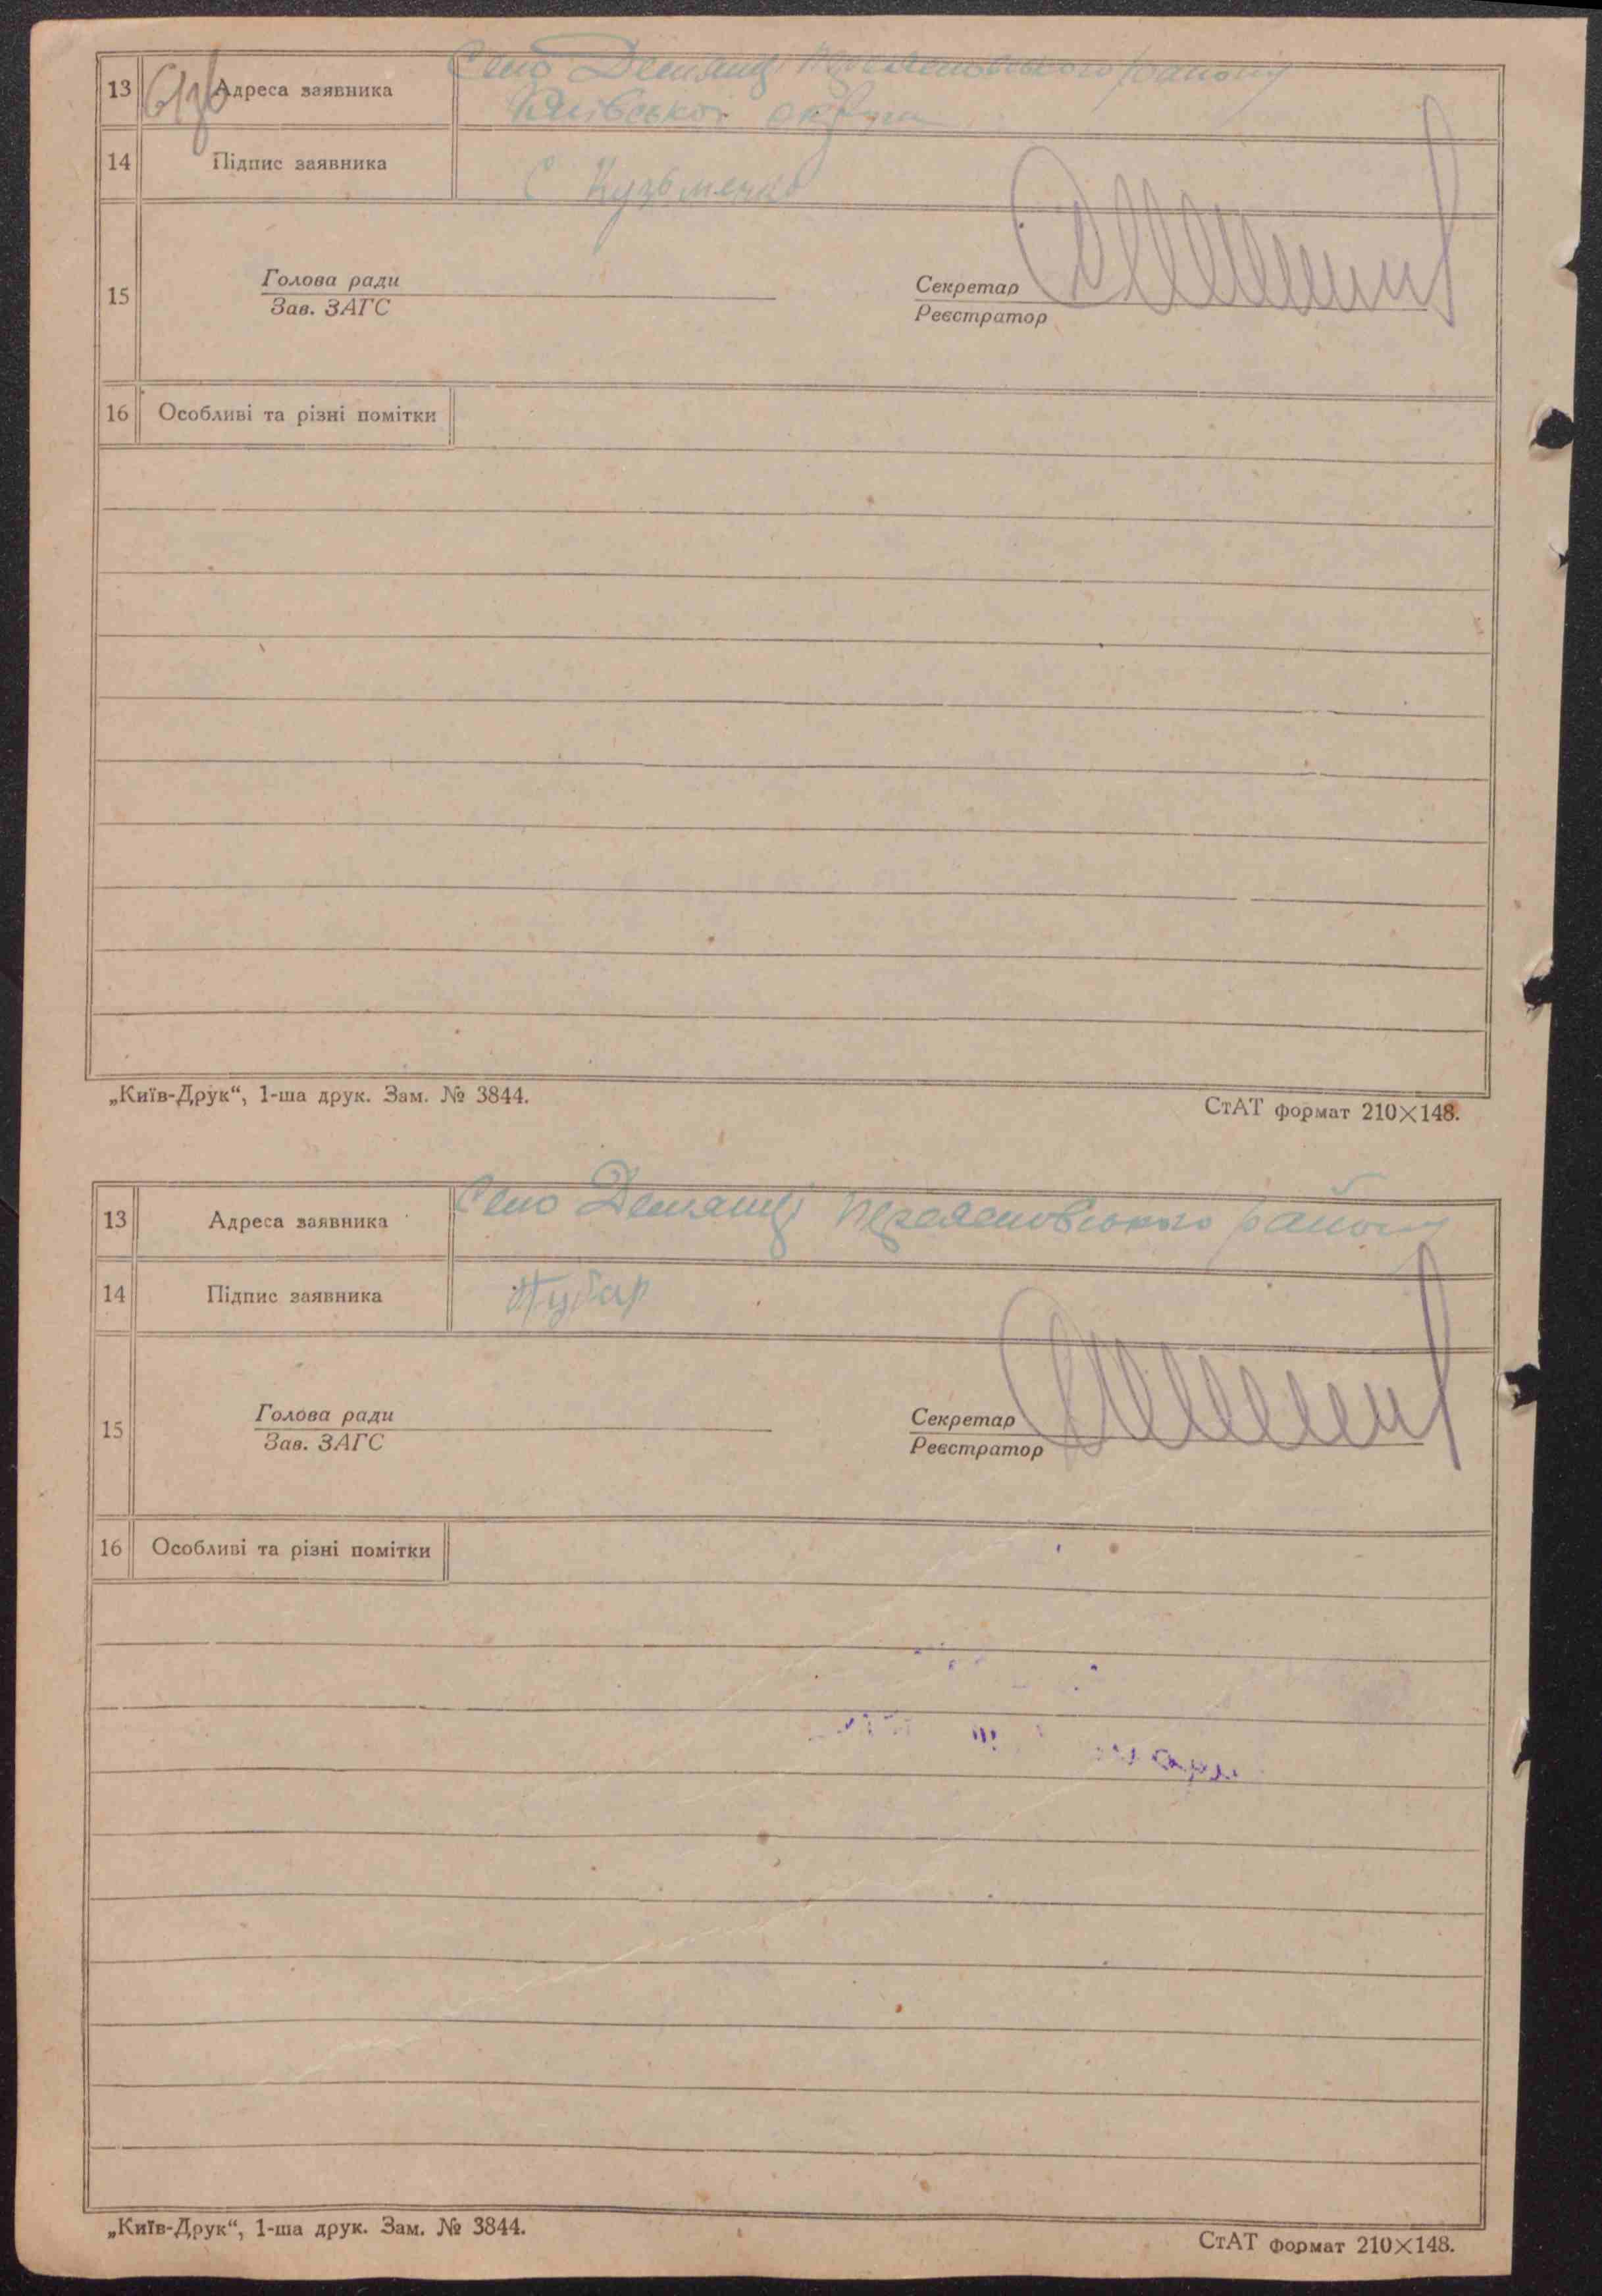 Село Демянці Переяславського району
13 Адреса заявника
Київської округи
14 Підпис заявника С Кузьменко
15 Голова ради Секретар
Зав. ЗАГС Реєстратор
16 Особливі та різні помітки
„Київ-Друк“, 1-ша друк. Зам. № 3844. СтАТ формат 210×148.
Село Демянці Переяславського району
13 Адреса заявника
14 Підпис заявника
15 Голова ради Секретар
Зав. ЗАГС Реєстратор
16 Особливі та різні помітки
„Київ-Друк“, 1-ша друк. Зам. № 3844. СтАТ формат 210×148.